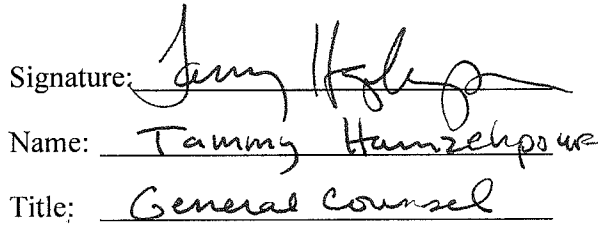 Signature:
Name: Tammy Hamzehpour
Title: General Counsel